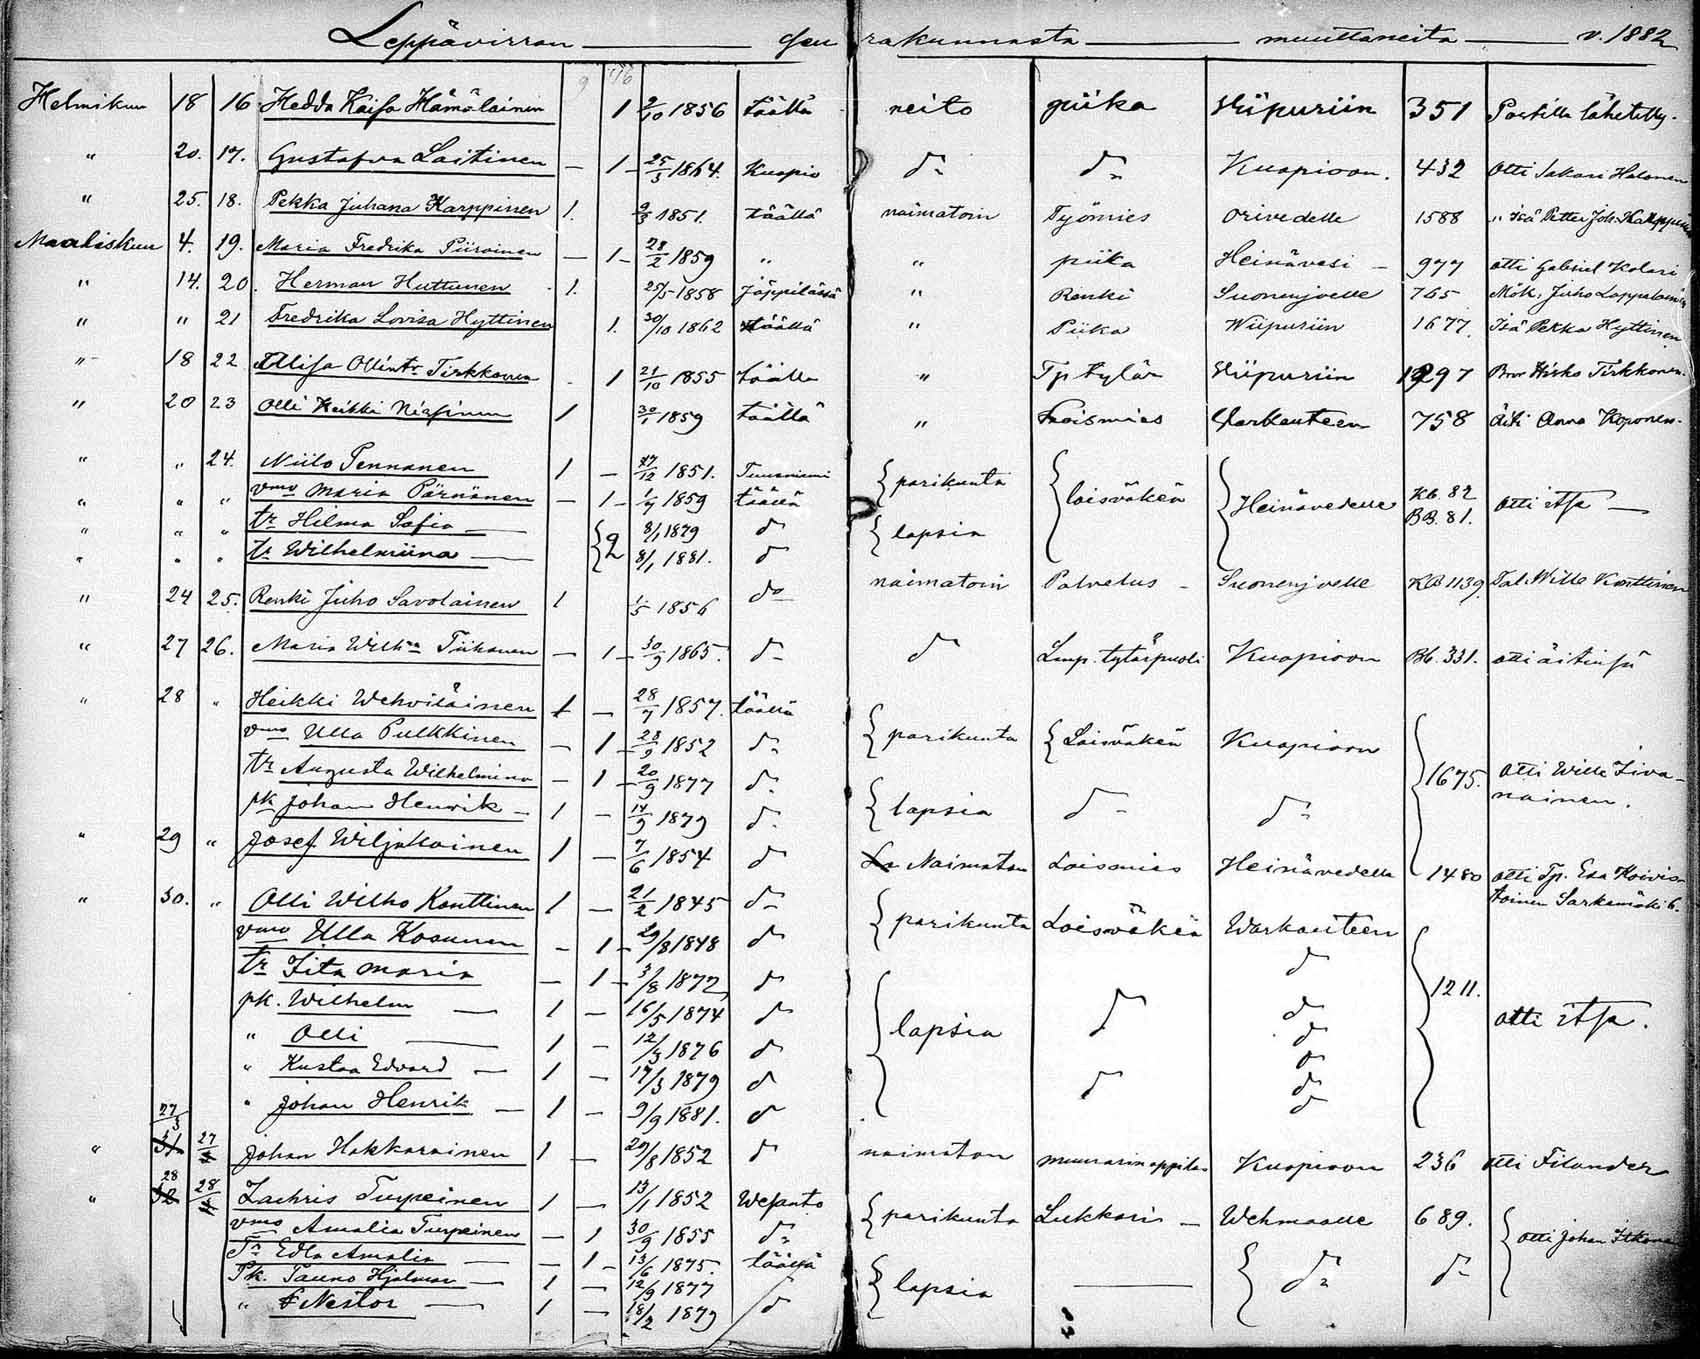 Leppävirran — Seurakunnasta — muuttaneita — v. 1882
Helmikuu 18 16 Hedda Kaisa Hämäläinen 1 2/10 1856 täällä neito piika Wiipuriin 351 Postilla lähetetty.
" 20. 17. Gustafva Laitinen — 1 — 25/3 1864. Kuopio do do Kuopioon. 432 Otti Sakari Halonen
" 25. 18. Pekka Juhana Karppinen 1. 9/3 1851. täällä naimatoin Työmies Orivedelle 1588 " isä Petter Joh. Karppinen
Maaliskuu 4. 19. Maria Fredrika Piiroinen — 1 — 28/2 1859 " " piika Heinävesi — 977 otti Gabriel Kolari
" 14. 20. Herman Huttunen 1. 25/5 1858 Jäppilässä " Renki Suonenjoelle 765 Mök. Juho Lappalainen
" " 21 Fredrika Lovisa Hyttinen 1. 30/10 1862 täällä " Piika Wiipuriin 1677. Isä Pekka Hyttinen
" 18 22 Elisa Ollintr Tirkkonen 1 21/10 1855 täällä " Tp tytär Wiipuriin 1297 Bror Hisko Tirkkonen.
" 20 23 Olli Heikki Niasinen 1 30/1 1859 täällä " Loismies Warkauteen 758 äiti Anna Koponen.
" " 24. Niilo Pennanen 1 — 17/12 1851. Tuusniemi { parikunta { loisväkeä { Heinävedelle Kb. 82 otti itse —
" " " vmo Maria Pärnänen — 1 — 1/7 1859 täällä BB. 81.
" " " tr Hilma Sofia — { 2 8/1 1879 do { lapsia
" " " tr Wilhelmiina — 8/1 1881. do
" 24 25. Renki Juho Savolainen 1 1/5 1856 do naimatoin Palvelus — Suonenjoelle KB 1139. Tal. Wille Konttinen
" 27 26. Maria Wilhna Tiihonen — 1 — 30/9 1865. do do Lmp. tytärpuoli Kuopioon Bb. 331. otti äitinsä
" 28 " Heikki Wehviläinen 1 — 28/7 1857. täällä { parikunta { Loisväkeä Kuopioon
vmo Ulla Pulkkinen — 1 — 28/9 1852 do
tr Augusta Wilhelmina — 1 20/9 1877 do { lapsia do do { 1675. otti Wille Iivanainen.
pk Johan Henrik — 1 — 14/9 1879 do
" 29 " Josef Wiljakainen 1 — 7/6 1854 do Naimaton Loismies Heinävedelle 1480 otti Tp. Esa Koivistoinen Sarkamäki 6.
" 30. " Olli Wilho Konttinen 1 — 21/2 1845 do { parikunta Loisväkeä Warkauteen
vmo Ulla Kosunen — 1 — 29/8 1848 do
tr Iita Maria — 1 — 3/8 1872 do do
pk. Wilhelm — 1 — 16/5 1874 do { lapsia do do { 1211. otti itse.
" Olli — 1 — 12/3 1876 do do
" Kustaa Edvard — 1 — 17/3 1879 do do do
" Johan Henrik — 1 — 9/9 1881. do do
27/3
" 31 27/4 Johan Hakkarainen 1 — 29/8 1852 do naimaton muurarinoppilas Kuopioon 236 otti Filander
28
" 32 28/4 Zachris Turpeinen 1 — 13/1 1852 Wesanto { parikunta Lukkari — Wehmaalle 689.
vmo Amalia Turpeinen — 1 30/9 1855 do { otti Johan Itkonen
Tr Edla Amalia — 1 — 13/6 1875. täällä { lapsia — { do do
Pk. Tauno Hjalmar — 1 — 12/9 1877
" Nestor — 1 — 18/2 1879 do